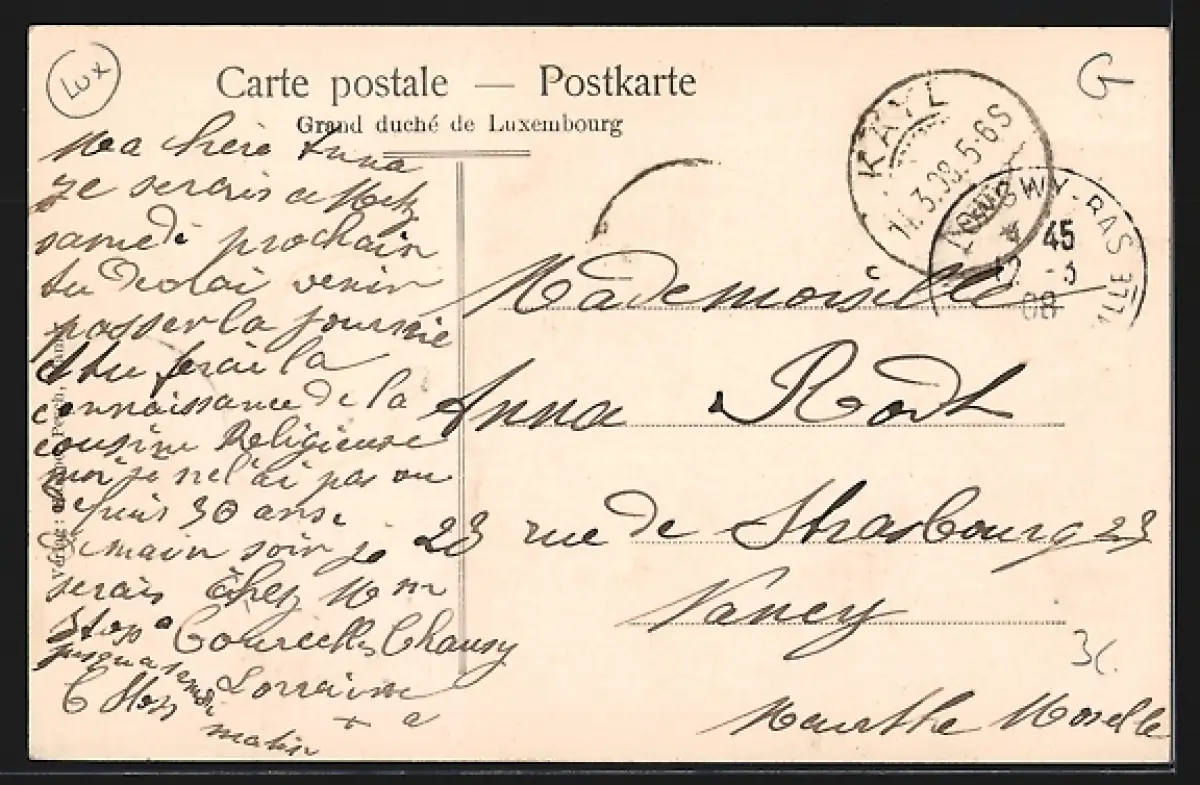 Lux
G
Carte postale — Postkarte
Grand duché de Luxembourg
KAYL
11.3.08.5-6S
LONGWY-BAS
45
12 -3
08
Ma chère Anna
je serais a Metz
samedi prochain
tu venir
passer la journée
tu ferai la
connaissance de la
cousine Religieuse
moi je ne l'ai pas vu
30 ans.
Demain soir je
serais chez Mm
Stop a Courcelles Chaussy
jusqu'a samedi
matin
Lorraine
Verlag:
Mademoiselle
Anna Roth
23 rue de Strasbourg 23
Nancy
Meurthe Moselle